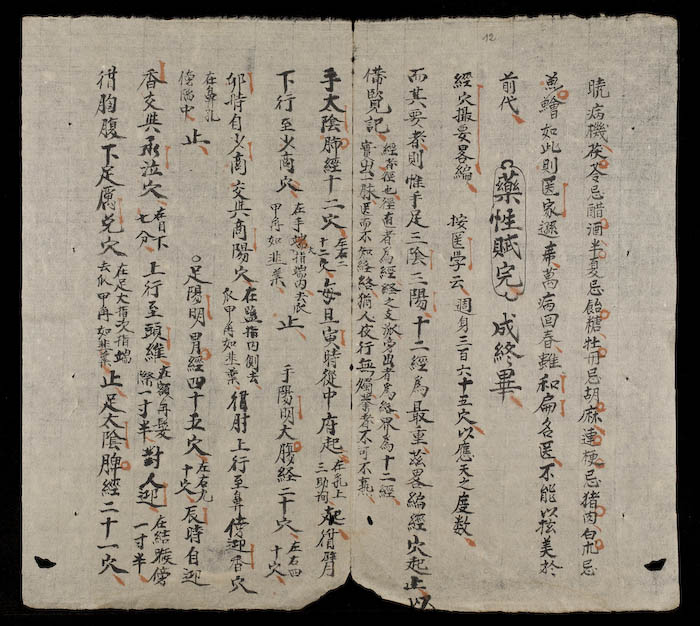 12
曉病機茯苓忌醋酒半夏忌飴糖牡丹忌胡麻連梗忌猪肉白朮忌
魚鱠如此則医家遜弃萬病回春雖和扁名医不能以玆美於
前代 藥性賦完 成終畢
經穴撮要畧編 按医学云週身三百六十五穴以應天之度數
而其要者則惟手足三陰三陽十二經為最重茲畧編經穴起止以
備覧記經者徑也徑直者為經經之支派旁出者為絡界為十二經
實出一脉医而不知經絡猶人夜行無燭業者不可不熟
手太陰肺經十二穴左右二十二穴每旦寅時從中府起在乳上三肋间起循臂
下行至少商穴在手大指端内去爪甲角如韭葉止 手陽明大腹経二十穴左右四十穴
卯時自少商交與商陽穴在塩指内側去爪甲角如韭葉循肘上行至鼻傍迎香穴
在鼻孔傍陷中止 足陽明胃經四十五穴左右九十穴辰時自迎
香交與承泣穴在目下七分上行至頭維在額角髮際一寸半對人迎在結喉傍一寸半
循胸腹下足厲兑穴在足大指次指端去爪甲角如韭葉止足太陰脾經二十一穴